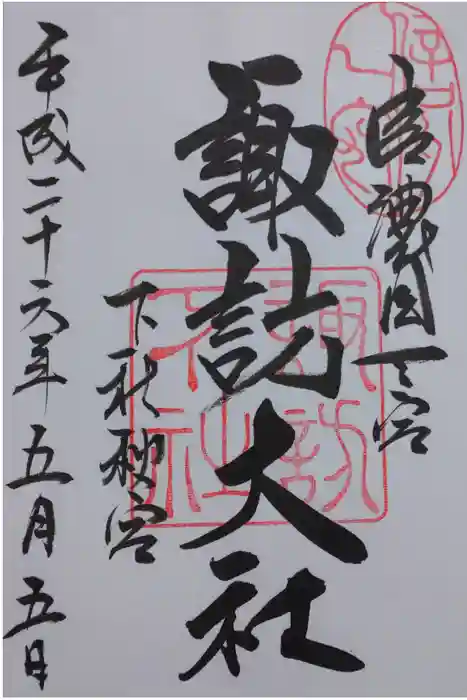 信濃國一宮
諏訪大社
下社秋宮
平成二十六年五月五日
諏訪
下社